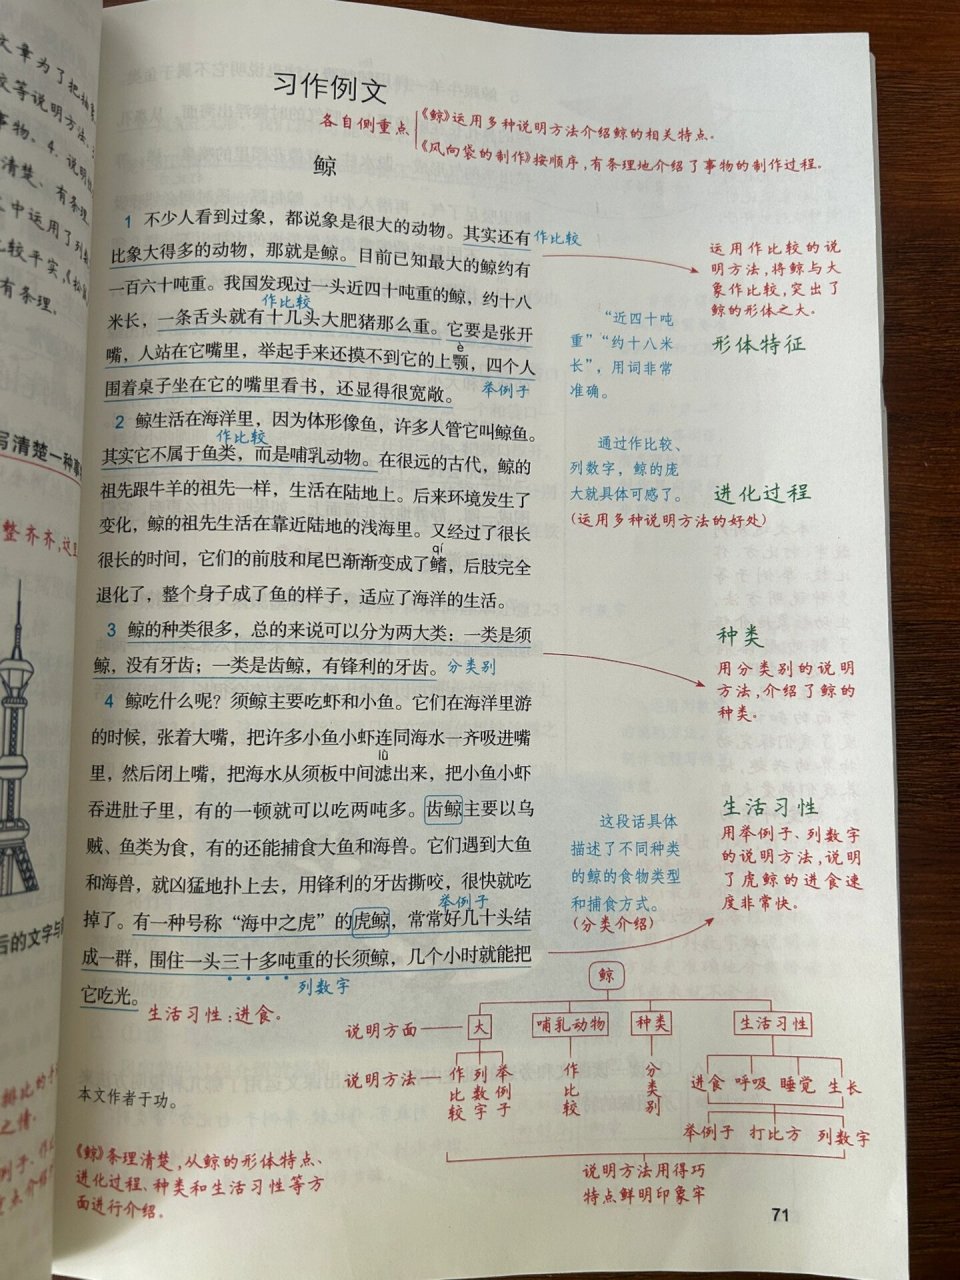 习作例文
各自侧重点
《鲸》运用多种说明方法介绍鲸的相关特点。
《风向袋的制作》按顺序，有条理地介绍了事物的制作过程。
鲸
1 不少人看到过象，都说象是很大的动物。其实还有
作比较
比象大得多的动物，那就是鲸。目前已知最大的鲸约有
一百六十吨重。我国发现过一头近四十吨重的鲸，约十八
作比较
米长，一条舌头就有十几头大肥猪那么重。它要是张开
è
嘴，人站在它嘴里，举起手来还摸不到它的上颚，四个人
围着桌子坐在它的嘴里看书，还显得很宽敞。
举例子
2 鲸生活在海洋里，因为体形像鱼，许多人管它叫鲸鱼。
作比较
其实它不属于鱼类，而是哺乳动物。在很远的古代，鲸的
祖先跟牛羊的祖先一样，生活在陆地上。后来环境发生了
变化，鲸的祖先生活在靠近陆地的浅海里。又经过了很长
qí
很长的时间，它们的前肢和尾巴渐渐变成了鳍，后肢完全
退化了，整个身子成了鱼的样子，适应了海洋的生活。
3 鲸的种类很多，总的来说可以分为两大类：一类是须
鲸，没有牙齿；一类是齿鲸，有锋利的牙齿。
分类别
4 鲸吃什么呢？须鲸主要吃虾和小鱼。它们在海洋里游
的时候，张着大嘴，把许多小鱼小虾连同海水一齐吸进嘴
lǜ
里，然后闭上嘴，把海水从须板中间滤出来，把小鱼小虾
吞进肚子里，有的一顿就可以吃两吨多。齿鲸主要以乌
贼、鱼类为食，有的还能捕食大鱼和海兽。它们遇到大鱼
和海兽，就凶猛地扑上去，用锋利的牙齿撕咬，很快就吃
举例子
掉了。有一种号称“海中之虎”的虎鲸，常常好几十头结
成一群，围住一头三十多吨重的长须鲸，几个小时就能把
列数字
它吃光。
生活习性：进食。
运用作比较的说
明方法，将鲸与大
象作比较，突出了
鲸的形体之大。
形体特征
“近四十吨
重”“约十八米
长”，用词非常
准确。
通过作比较、
列数字，鲸的庞
大就具体可感了。
（运用多种说明方法的好处）
进化过程
种类
用分类别的说明
方法，介绍了鲸的
种类。
生活习性
用举例子、列数字
的说明方法，说明
了虎鲸的进食速
度非常快。
这段话具体
描述了不同种类
的鲸的食物类型
和捕食方式。
（分类介绍）
鲸
说明方面
大
哺乳动物
种类
生活习性
说明方法
作比较
列数字
举例子
作比较
分类别
进食 呼吸 睡觉 生长
举例子 打比方 列数字
说明方法用得巧
特点鲜明印象牢
本文作者于功。
《鲸》条理清楚，从鲸的形体特点、
进化过程、种类和生活习性等方
面进行介绍。
71